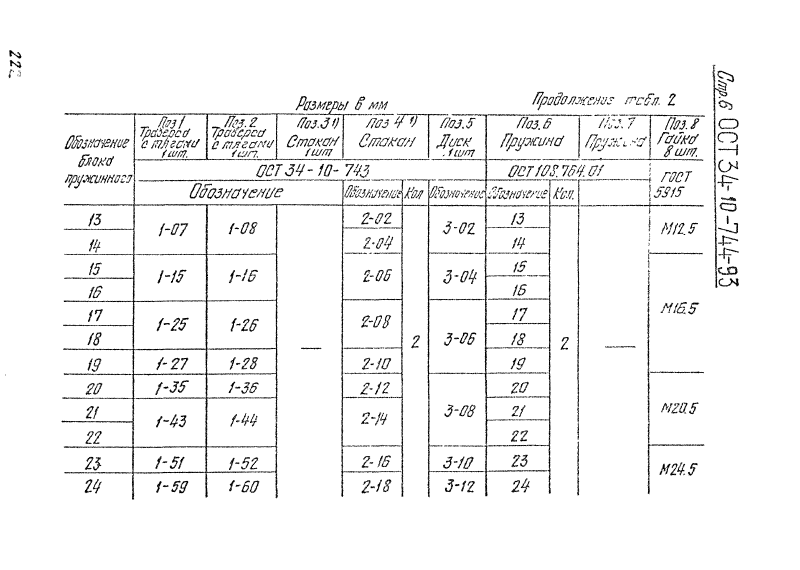 222
Стр.6 ОСТ 34-10-744-93
Размеры в мм
Продолжение табл. 2
Обозначение блока пружинного
Поз 1 Траверса с тягами 1 шт.
Поз. 2 Траверса с тягами 1 шт.
Поз. 3 1) Стакан 1 шт
Поз 4 1) Стакан
Поз. 5 Диск 1 шт
Поз. 6 Пружина
Поз. 7 Пружина
Поз. 8 Гайка 8 шт.
ОСТ 34-10-743
ОСТ 108.764.01
ГОСТ 5915
Обозначение
Обозначение Кол Обозначение Обозначение Кол.
13 1-07 1-08 — 2-02 2 3-02 13 2 — М12.5
14 2-04 14
15 1-15 1-16 2-06 3-04 15 М16.5
16 16
17 1-25 1-26 2-08 3-06 17
18 18
19 1-27 1-28 2-10 19
20 1-35 1-36 2-12 3-08 20 М20.5
21 1-43 1-44 2-14 21
22 22
23 1-51 1-52 2-16 3-10 23 М24.5
24 1-59 1-60 2-18 3-12 24